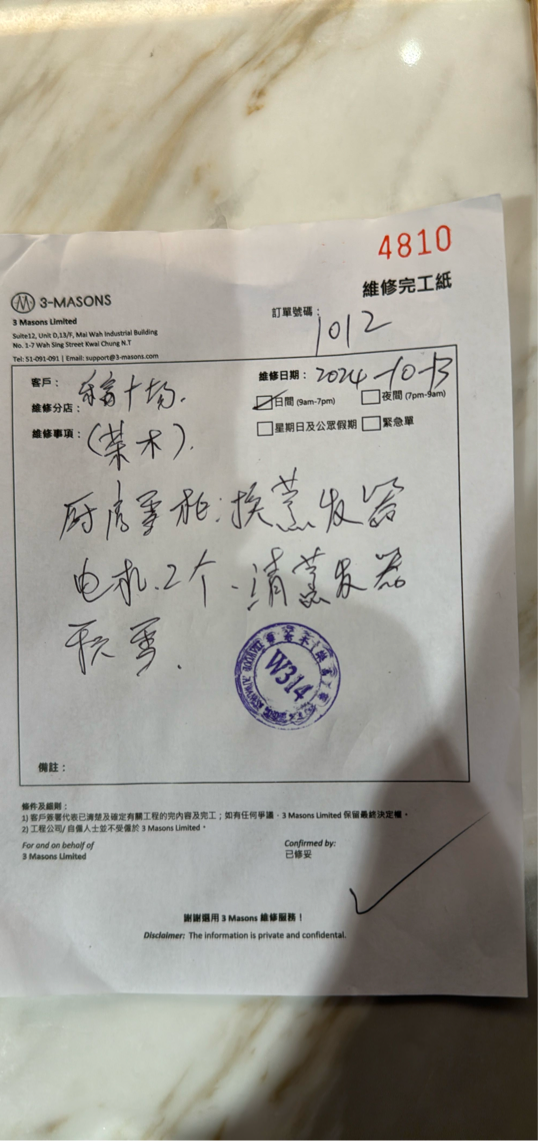 4810
維修完工紙
3-MASONS
3 Masons Limited
Suite12, Unit D,13/F, Mai Wah Industrial Building
No. 1-7 Wah Sing Street Kwai Chung N.T
Tel: 51-091-091 | Email: support@3-masons.com
訂單號碼： 1012
客戶：
維修分店：
維修事項： (荣木).
維修日期： 2024-10-13
日間 (9am-7pm) 夜間 (7pm-9am)
星期日及公眾假期 緊急單
厨房雪柜:换蒸发器
电机.2个.清蒸发器
积雪.
W314
備註：
條件及細則：
1) 客戶簽署代表已清楚及確定有關工程的完內容及完工；如有任何爭議，3 Masons Limited 保留最終決定權。
2) 工程公司/ 自僱人士並不受僱於 3 Masons Limited。
For and on behalf of
3 Masons Limited
Confirmed by:
已修妥
謝謝選用 3 Masons 維修服務！
Disclaimer: The information is private and confidental.